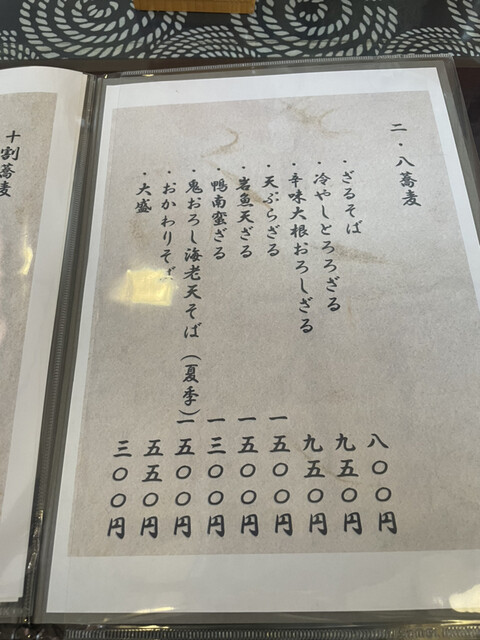 二・八蕎麦
・ざるそば 八〇〇円
・冷やしとろろざる 九五〇円
・辛味大根おろしざる 九五〇円
・天ぷらざる 一五〇〇円
・岩魚天ざる 一五〇〇円
・鴨南蛮ざる 一三〇〇円
・鬼おろし海老天そば（夏季） 一五〇〇円
・おかわりそば 五五〇円
・大盛 三〇〇円
十割蕎麦